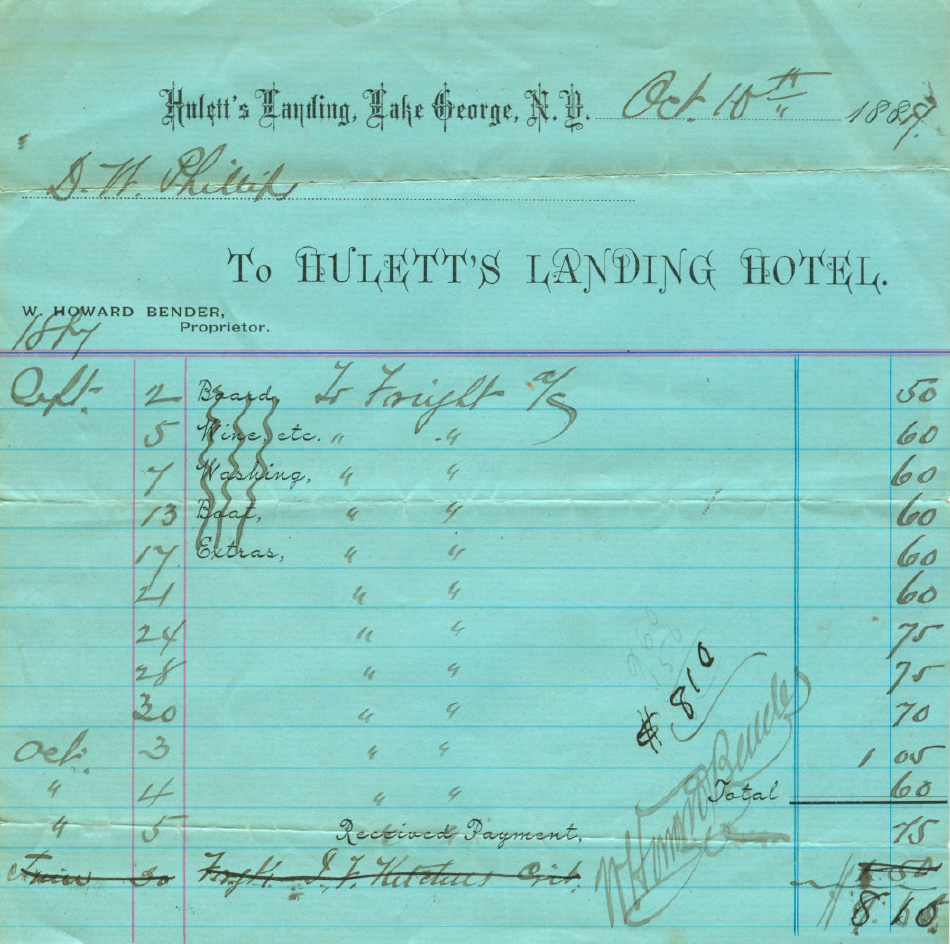 Hulett's Landing, Lake George, N. Y. Oct. 10th 1887
D. W. Phillips
To HULETT'S LANDING HOTEL.
W. HOWARD BENDER,
Proprietor.
1887
Sept. 2 Board, To Frieght a/c 50
5 Wine, etc. " " 60
7 Washing, " " 60
13 Boat, " " 60
17 Extras, " " 60
21 " " 60
24 " " 75
28 " " 75
30 " " 70
Oct. 3 " " 1 05
" 4 " " Total 60
" 5 Received Payment, 75
30 1 50
8 10
$ 8 10
W Howard Bender